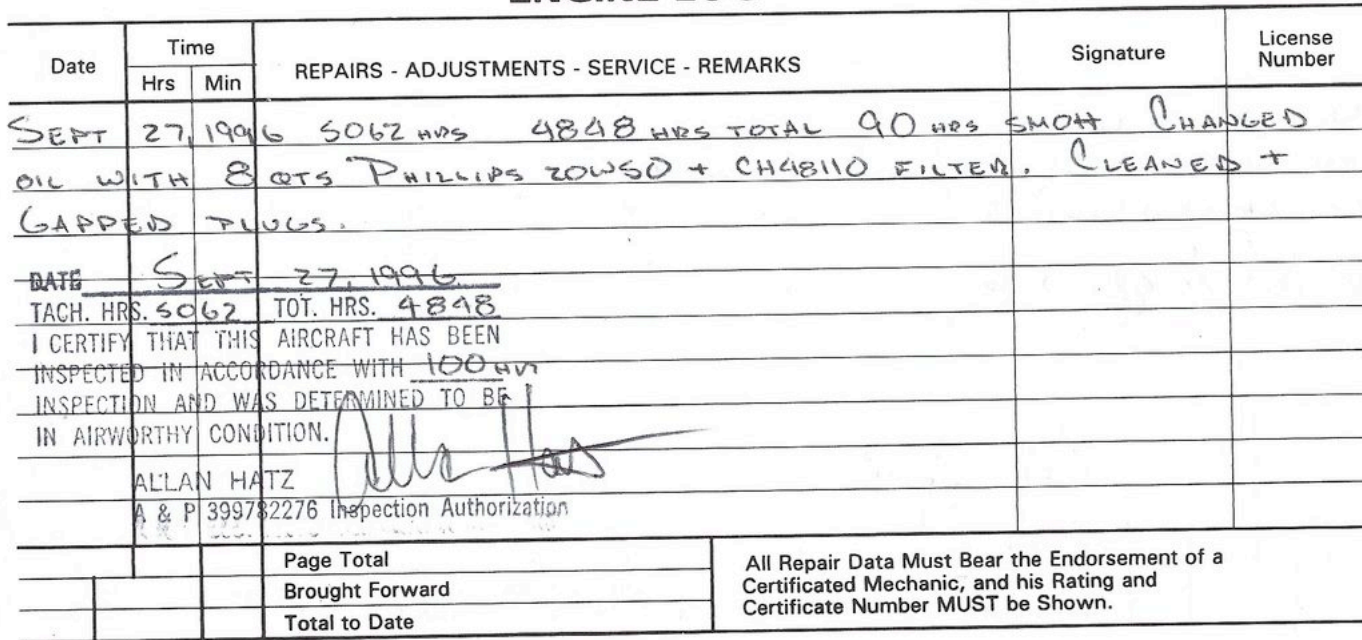 Date
Time
Hrs Min
REPAIRS - ADJUSTMENTS - SERVICE - REMARKS
Signature
License
Number
SEPT 27, 1996 5062 HRS 4848 HRS TOTAL 90 HRS SMOH CHANGED
OIL WITH 8 QTS PHILLIPS 20W50 + CH48110 FILTER. CLEANED +
GAPPED PLUGS.
DATE SEPT 27, 1996
TACH. HRS. 5062 TOT. HRS. 4848
I CERTIFY THAT THIS AIRCRAFT HAS BEEN
INSPECTED IN ACCORDANCE WITH 100 HR
INSPECTION AND WAS DETERMINED TO BE
IN AIRWORTHY CONDITION.
ALLAN HATZ
A & P 399782276 Inspection Authorization
Page Total
Brought Forward
Total to Date
All Repair Data Must Bear the Endorsement of a
Certificated Mechanic, and his Rating and
Certificate Number MUST be Shown.